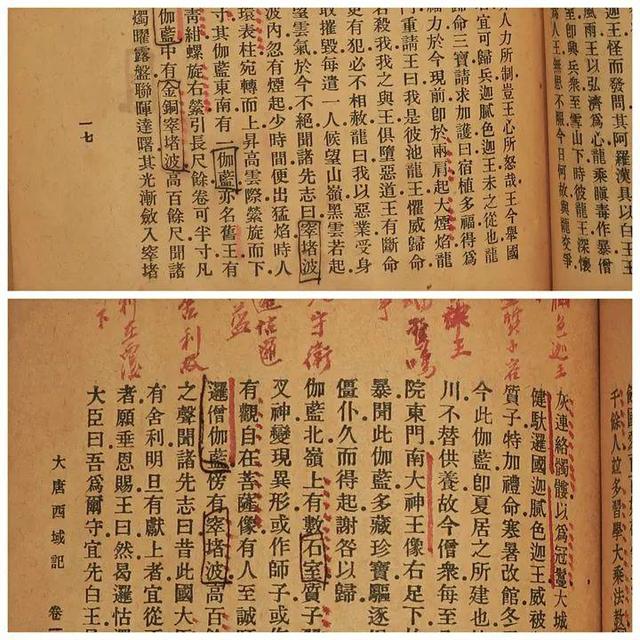 迦王怪而發問其阿羅漢具以白王王
風雨王以弘濟爲心龍乘瞋毒作暴僧
至卽興兵衆至雪山下時彼龍王深懷
爲人王無思不服今日何故與龍交爭
人力所制豈王心所怒哉王今舉國
宜可歸兵迦膩色迦王未之從也龍
歸命三寶請求加護曰宿殖多福得爲
福力於今現前卽於兩肩起大煙焰龍
門重請王曰我是彼池龍王懼威歸命
若殺我我之與王俱墮惡道王有斷命
更有犯必不相赦龍曰我以惡業受身
取摧毀每遣一人候望山嶺黑雲若起
望雲氣於今不絕聞諸先志曰窣堵波
波內忽有煙起少時間便出猛焰時人
環表柱宛轉而上昇高雲際縈旋而下
寸其伽藍東南有一伽藍亦名舊王有
靑紺螺旋右縈引長尺餘卷可半寸凡
伽藍中有金銅窣堵波高百餘尺聞諸
燭曜露盤聯暉達曙其光漸斂入窣堵
一七
千餘人並多習學大乘法敎
灰連絡髑髏以爲冠鬘大城
健馱邏國迦膩色迦王威被
質子特加禮命寒暑改館冬
今此伽藍卽夏居之所建也
川不替供養故今僧衆每至
院東門南大神王像右足下
暴聞此伽藍多藏珍寶驅逐
僵仆久而得起謝咎以歸
伽藍北嶺上有數石室質子
叉神變現異形或作師子或作
有觀自在菩薩像有人至誠
邏僧伽藍傍有窣堵波高百餘
之聲聞諸先志曰昔此國大
有舍利明旦有獻上者宜從
者願垂恩賜王曰然曷邏怙
大臣曰吾爲爾守宜先白王
大唐西域記 卷一
迦王
質子
守衛
舍利